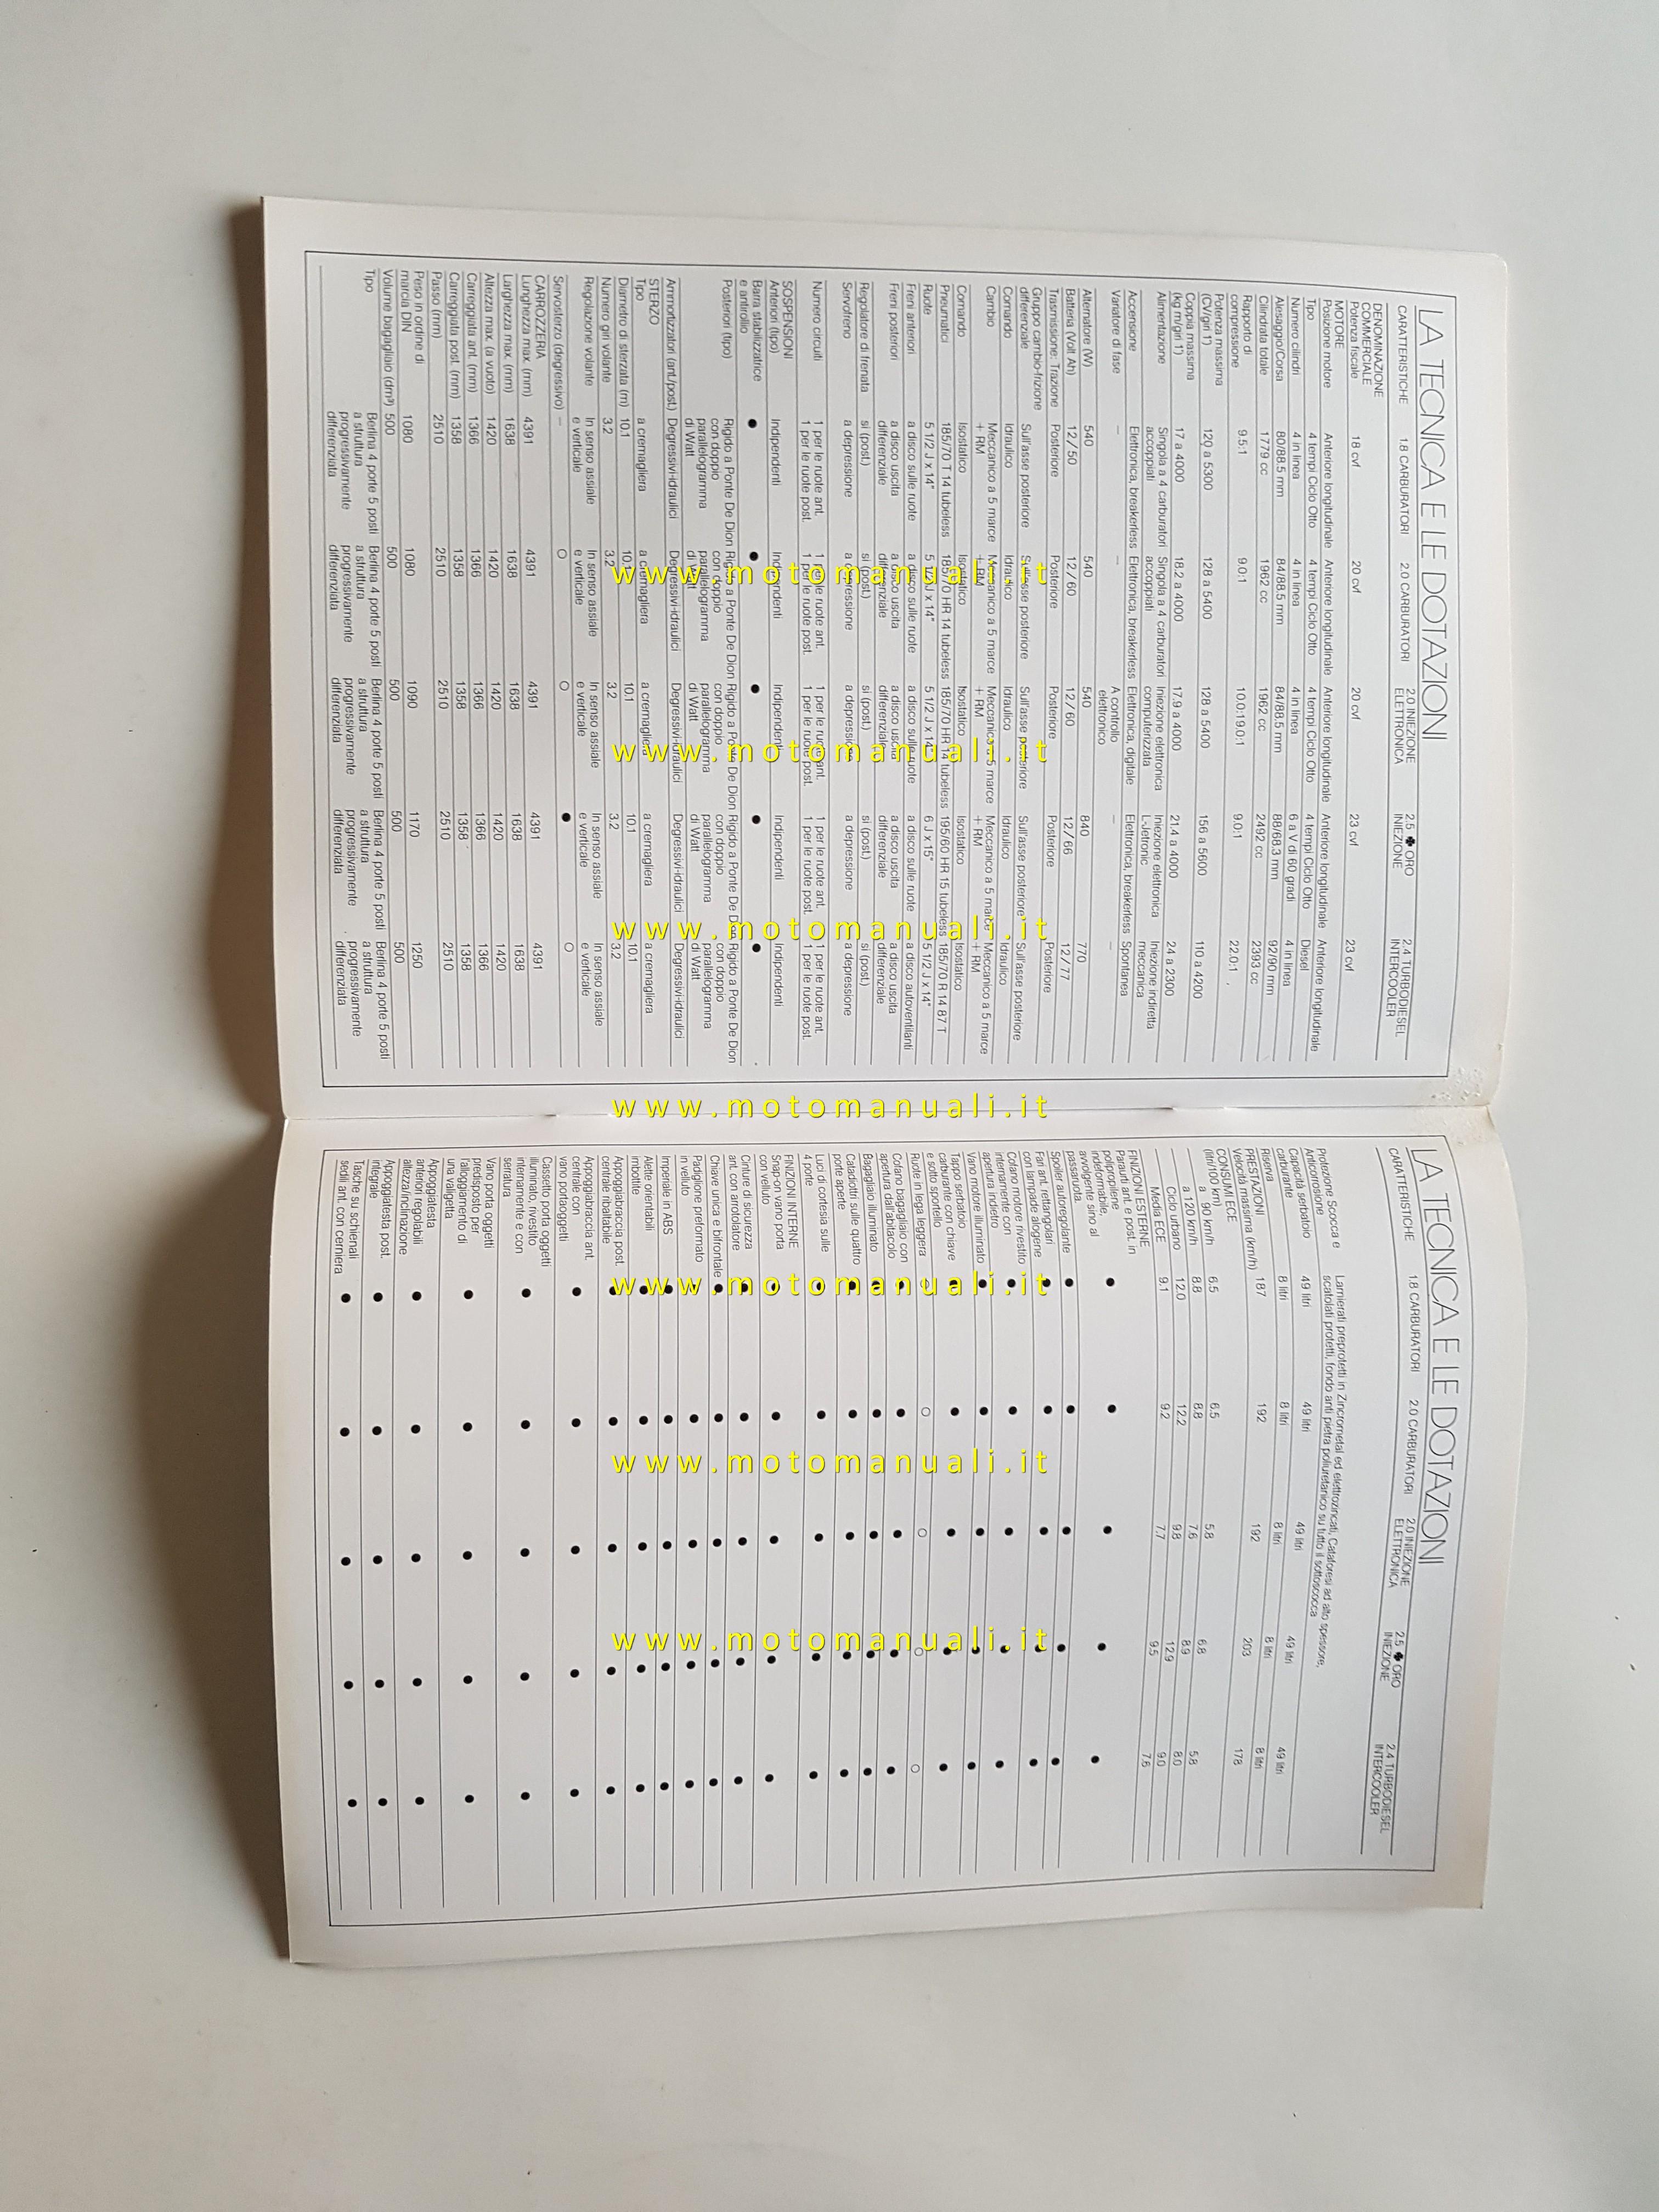 LA TECNICA E LE DOTAZIONI
CARATTERISTICHE 1.8 CARBURATORI 2.0 CARBURATORI 2.0 INIEZIONE ELETTRONICA 2.5 ♣ ORO INIEZIONE 2.4 TURBODIESEL INTERCOOLER
DENOMINAZIONE
COMMERCIALE
Potenza fiscale 18 cvf 20 cvf 20 cvf 23 cvf 23 cvf
MOTORE
Posizione motore Anteriore longitudinale Anteriore longitudinale Anteriore longitudinale Anteriore longitudinale Anteriore longitudinale
Tipo 4 tempi Ciclo Otto 4 tempi Ciclo Otto 4 tempi Ciclo Otto 4 tempi Ciclo Otto Diesel
Numero cilindri 4 in linea 4 in linea 4 in linea 6 a V di 60 gradi 4 in linea
Alesaggio/Corsa 80/88.5 mm 84/88.5 mm 84/88.5 mm 88/68.3 mm 92/90 mm
Cilindrata totale 1779 cc 1962 cc 1962 cc 2492 cc 2393 cc
Rapporto di
compressione 9.5:1 9.0:1 10.0:19.0:1 9.0:1 22.0:1
Potenza massima
(CV/giri 1') 120 a 5300 128 a 5400 128 a 5400 156 a 5600 110 a 4200
Coppia massima
(kg m/giri 1') 17 a 4000 18.2 a 4000 17.9 a 4000 21.4 a 4000 24 a 2300
Alimentazione Singola a 4 carburatori Singola a 4 carburatori Iniezione elettronica Iniezione elettronica Iniezione indiretta
accoppiati accoppiati computerizzata L-Jetronic meccanica
Accensione Elettronica, breakerless Elettronica, breakerless Elettronica, digitale Elettronica, breakerless Spontanea
Variatore di fase – – A controllo – –
elettronico
Alternatore (W) 540 540 540 840 770
Batteria (Volt Ah) 12 / 50 12 / 60 12 / 60 12 / 66 12 / 77
Trasmissione: Trazione Posteriore Posteriore Posteriore Posteriore Posteriore
Gruppo cambio-frizione
differenziale Sull'asse posteriore Sull'asse posteriore Sull'asse posteriore Sull'asse posteriore Sull'asse posteriore
Comando Idraulico Idraulico Idraulico Idraulico Idraulico
Cambio Meccanico a 5 marce Meccanico a 5 marce Meccanico a 5 marce Meccanico a 5 marce Meccanico a 5 marce
+ RM + RM + RM + RM + RM
Comando Isostatico Isostatico Isostatico Isostatico Isostatico
Pneumatici 185/70 T 14 tubeless 185/70 HR 14 tubeless 185/70 HR 14 tubeless 195/60 HR 15 tubeless 185/70 R 14 87 T
Ruote 5 1/2 J x 14" 5 1/2 J x 14" 5 1/2 J x 14" 6 J x 15" 5 1/2 J x 14"
Freni anteriori a disco sulle ruote a disco sulle ruote a disco sulle ruote a disco sulle ruote a disco autoventilanti
Freni posteriori a disco uscita a disco uscita a disco uscita a disco uscita a disco uscita
differenziale differenziale differenziale differenziale differenziale
Regolatore di frenata si (post.) si (post.) si (post.) si (post.) si (post.)
Servofreno a depressione a depressione a depressione a depressione a depressione
Numero circuiti 1 per le ruote ant. 1 per le ruote ant. 1 per le ruote ant. 1 per le ruote ant. 1 per le ruote ant.
1 per le ruote post. 1 per le ruote post. 1 per le ruote post. 1 per le ruote post. 1 per le ruote post.
SOSPENSIONI
Anteriori (tipo) Indipendenti Indipendenti Indipendenti Indipendenti Indipendenti
Barra stabilizzatrice ● ● ● ● ●
e antirollio
Posteriori (tipo) Rigido a Ponte De Dion Rigido a Ponte De Dion Rigido a Ponte De Dion Rigido a Ponte De Dion Rigido a Ponte De Dion
con doppio con doppio con doppio con doppio con doppio
parallelogramma parallelogramma parallelogramma parallelogramma parallelogramma
di Watt di Watt di Watt di Watt di Watt
Ammortizzatori (ant./post.) Degressivi-idraulici Degressivi-idraulici Degressivi-idraulici Degressivi-idraulici Degressivi-idraulici
STERZO
Tipo a cremagliera a cremagliera a cremagliera a cremagliera a cremagliera
Diametro di sterzata (m) 10.1 10.1 10.1 10.1 10.1
Numero giri volante 3.2 3.2 3.2 3.2 3.2
Regolazione volante In senso assiale In senso assiale In senso assiale In senso assiale In senso assiale
e verticale e verticale e verticale e verticale e verticale
Servosterzo (degressivo) – ○ ○ ● ○
CARROZZERIA
Lunghezza max. (mm) 4391 4391 4391 4391 4391
Larghezza max. (mm) 1638 1638 1638 1638 1638
Altezza max. (a vuoto) 1420 1420 1420 1420 1420
Carreggiata ant. (mm) 1366 1366 1366 1366 1366
Carreggiata post. (mm) 1358 1358 1358 1358 1358
Passo (mm) 2510 2510 2510 2510 2510
Peso in ordine di
marcia DIN 1080 1080 1090 1170 1250
Volume bagagliaio (dm³) 500 500 500 500 500
Tipo Berlina 4 porte 5 posti Berlina 4 porte 5 posti Berlina 4 porte 5 posti Berlina 4 porte 5 posti Berlina 4 porte 5 posti
a struttura a struttura a struttura a struttura a struttura
progressivamente progressivamente progressivamente progressivamente progressivamente
differenziata differenziata differenziata differenziata differenziata
LA TECNICA E LE DOTAZIONI
CARATTERISTICHE 1.8 CARBURATORI 2.0 CARBURATORI 2.0 INIEZIONE ELETTRONICA 2.5 ♣ ORO INIEZIONE 2.4 TURBODIESEL INTERCOOLER
Protezione Scocca e Lamierati preprotetti in Zincrometal ed elettrozincati, Cataforesi ad alto spessore,
Anticorrosione scatolati protetti, fondo anti pietra poliuretanico su tutto il sottoscocca
Capacità serbatoio
carburante 49 litri 49 litri 49 litri 49 litri 49 litri
Riserva 8 litri 8 litri 8 litri 8 litri 8 litri
PRESTAZIONI
Velocità massima (km/h) 187 192 192 203 178
CONSUMI ECE
(litri/100 km)
a 90 km/h 6.5 6.5 5.8 6.8 5.8
a 120 km/h 8.8 8.8 7.6 8.9 8.0
Ciclo urbano 12.0 12.2 9.8 12.9 9.0
Media ECE 9.1 9.2 7.7 9.5 7.6
FINIZIONI ESTERNE
Paraurti ant. e post. in
polipropilene
indeformabile,
avvolgente sino al
passaruota ● ● ● ● ●
Spoiler autoregolante ● ● ● ● ●
Fari ant. rettangolari
con lampade alogene ● ● ● ● ●
Cofano motore rivestito
internamente con
apertura indietro ● ● ● ● ●
Vano motore illuminato ● ● ● ● ●
Tappo serbatoio
carburante con chiave
e sotto sportello ● ● ● ● ●
Ruote in lega leggera ○ ○ ○ ○ ○
Cofano bagagliaio con
apertura dall'abitacolo ● ● ● ● ●
Bagagliaio illuminato ● ● ● ● ●
Catadiottri sulle quattro
porte aperte ● ● ● ● ●
Luci di cortesia sulle
4 porte ● ● ● ● ●
FINIZIONI INTERNE
Snap-on vano porta
con velluto ● ● ● ● ●
Cinture di sicurezza
ant. con arrotolatore ● ● ● ● ●
Chiave unica e bifrontale ● ● ● ● ●
Padiglione preformato
in velluto ● ● ● ● ●
Imperiale in ABS ● ● ● ● ●
Alette orientabili
imbottite ● ● ● ● ●
Appoggiabraccia post.
centrale ribaltabile ● ● ● ● ●
Appoggiabraccia ant.
centrale con
vano portaoggetti ● ● ● ● ●
Cassetto porta oggetti
illuminato, rivestito
internamente e con
serratura ● ● ● ● ●
Vano porta oggetti
predisposto per
l'alloggiamento di
una valigetta ● ● ● ● ●
Appoggiatesta
anteriori regolabili
altezza/inclinazione ● ● ● ● ●
Appoggiatesta post.
integrale ● ● ● ● ●
Tasche su schienali
sedili ant. con cerniera ● ● ● ● ●
www.motomanuali.it
www.motomanuali.it
www.motomanuali.it
www.motomanuali.it
www.motomanuali.it
www.motomanuali.it
www.motomanuali.it